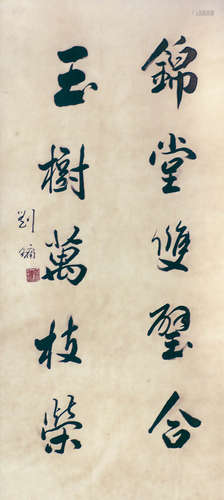 錦堂雙璧合
玉樹萬枝榮
劉墉